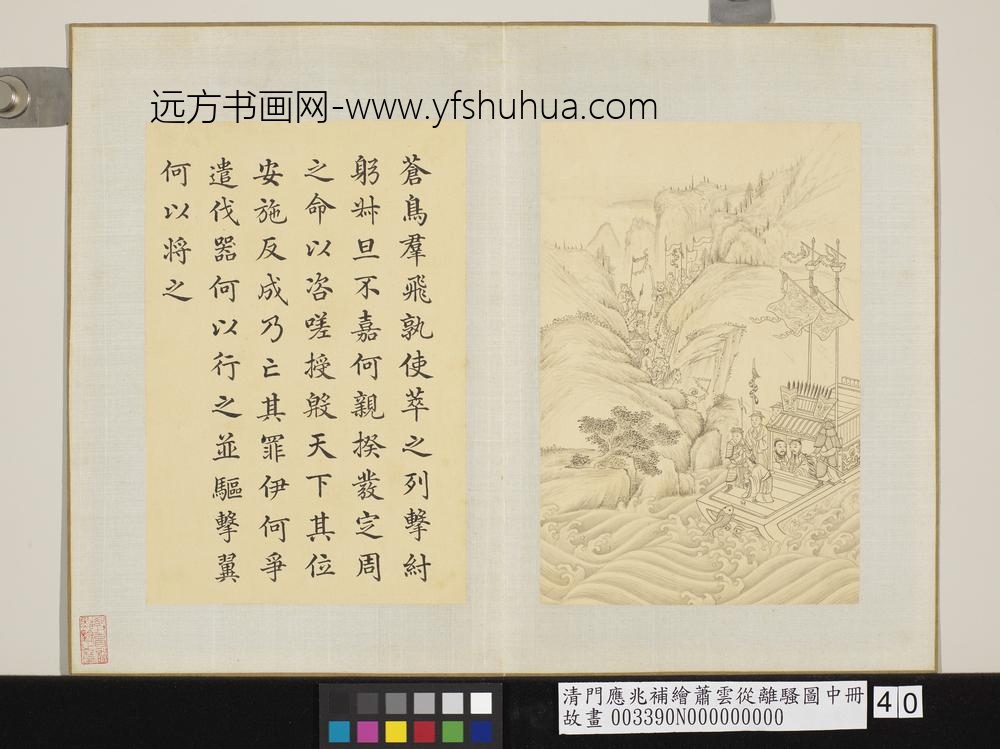 远方书画网-www.yfshuhua.com
蒼鳥羣飛孰使萃之列擊紂
躬叔旦不嘉何親揆發定周
之命以咨嗟授殷天下其位
安施反成乃亡其罪伊何爭
遣伐器何以行之並驅擊翼
何以将之
清門應兆補繪蕭雲從離騷圖中冊
故畫 003390N000000000
40